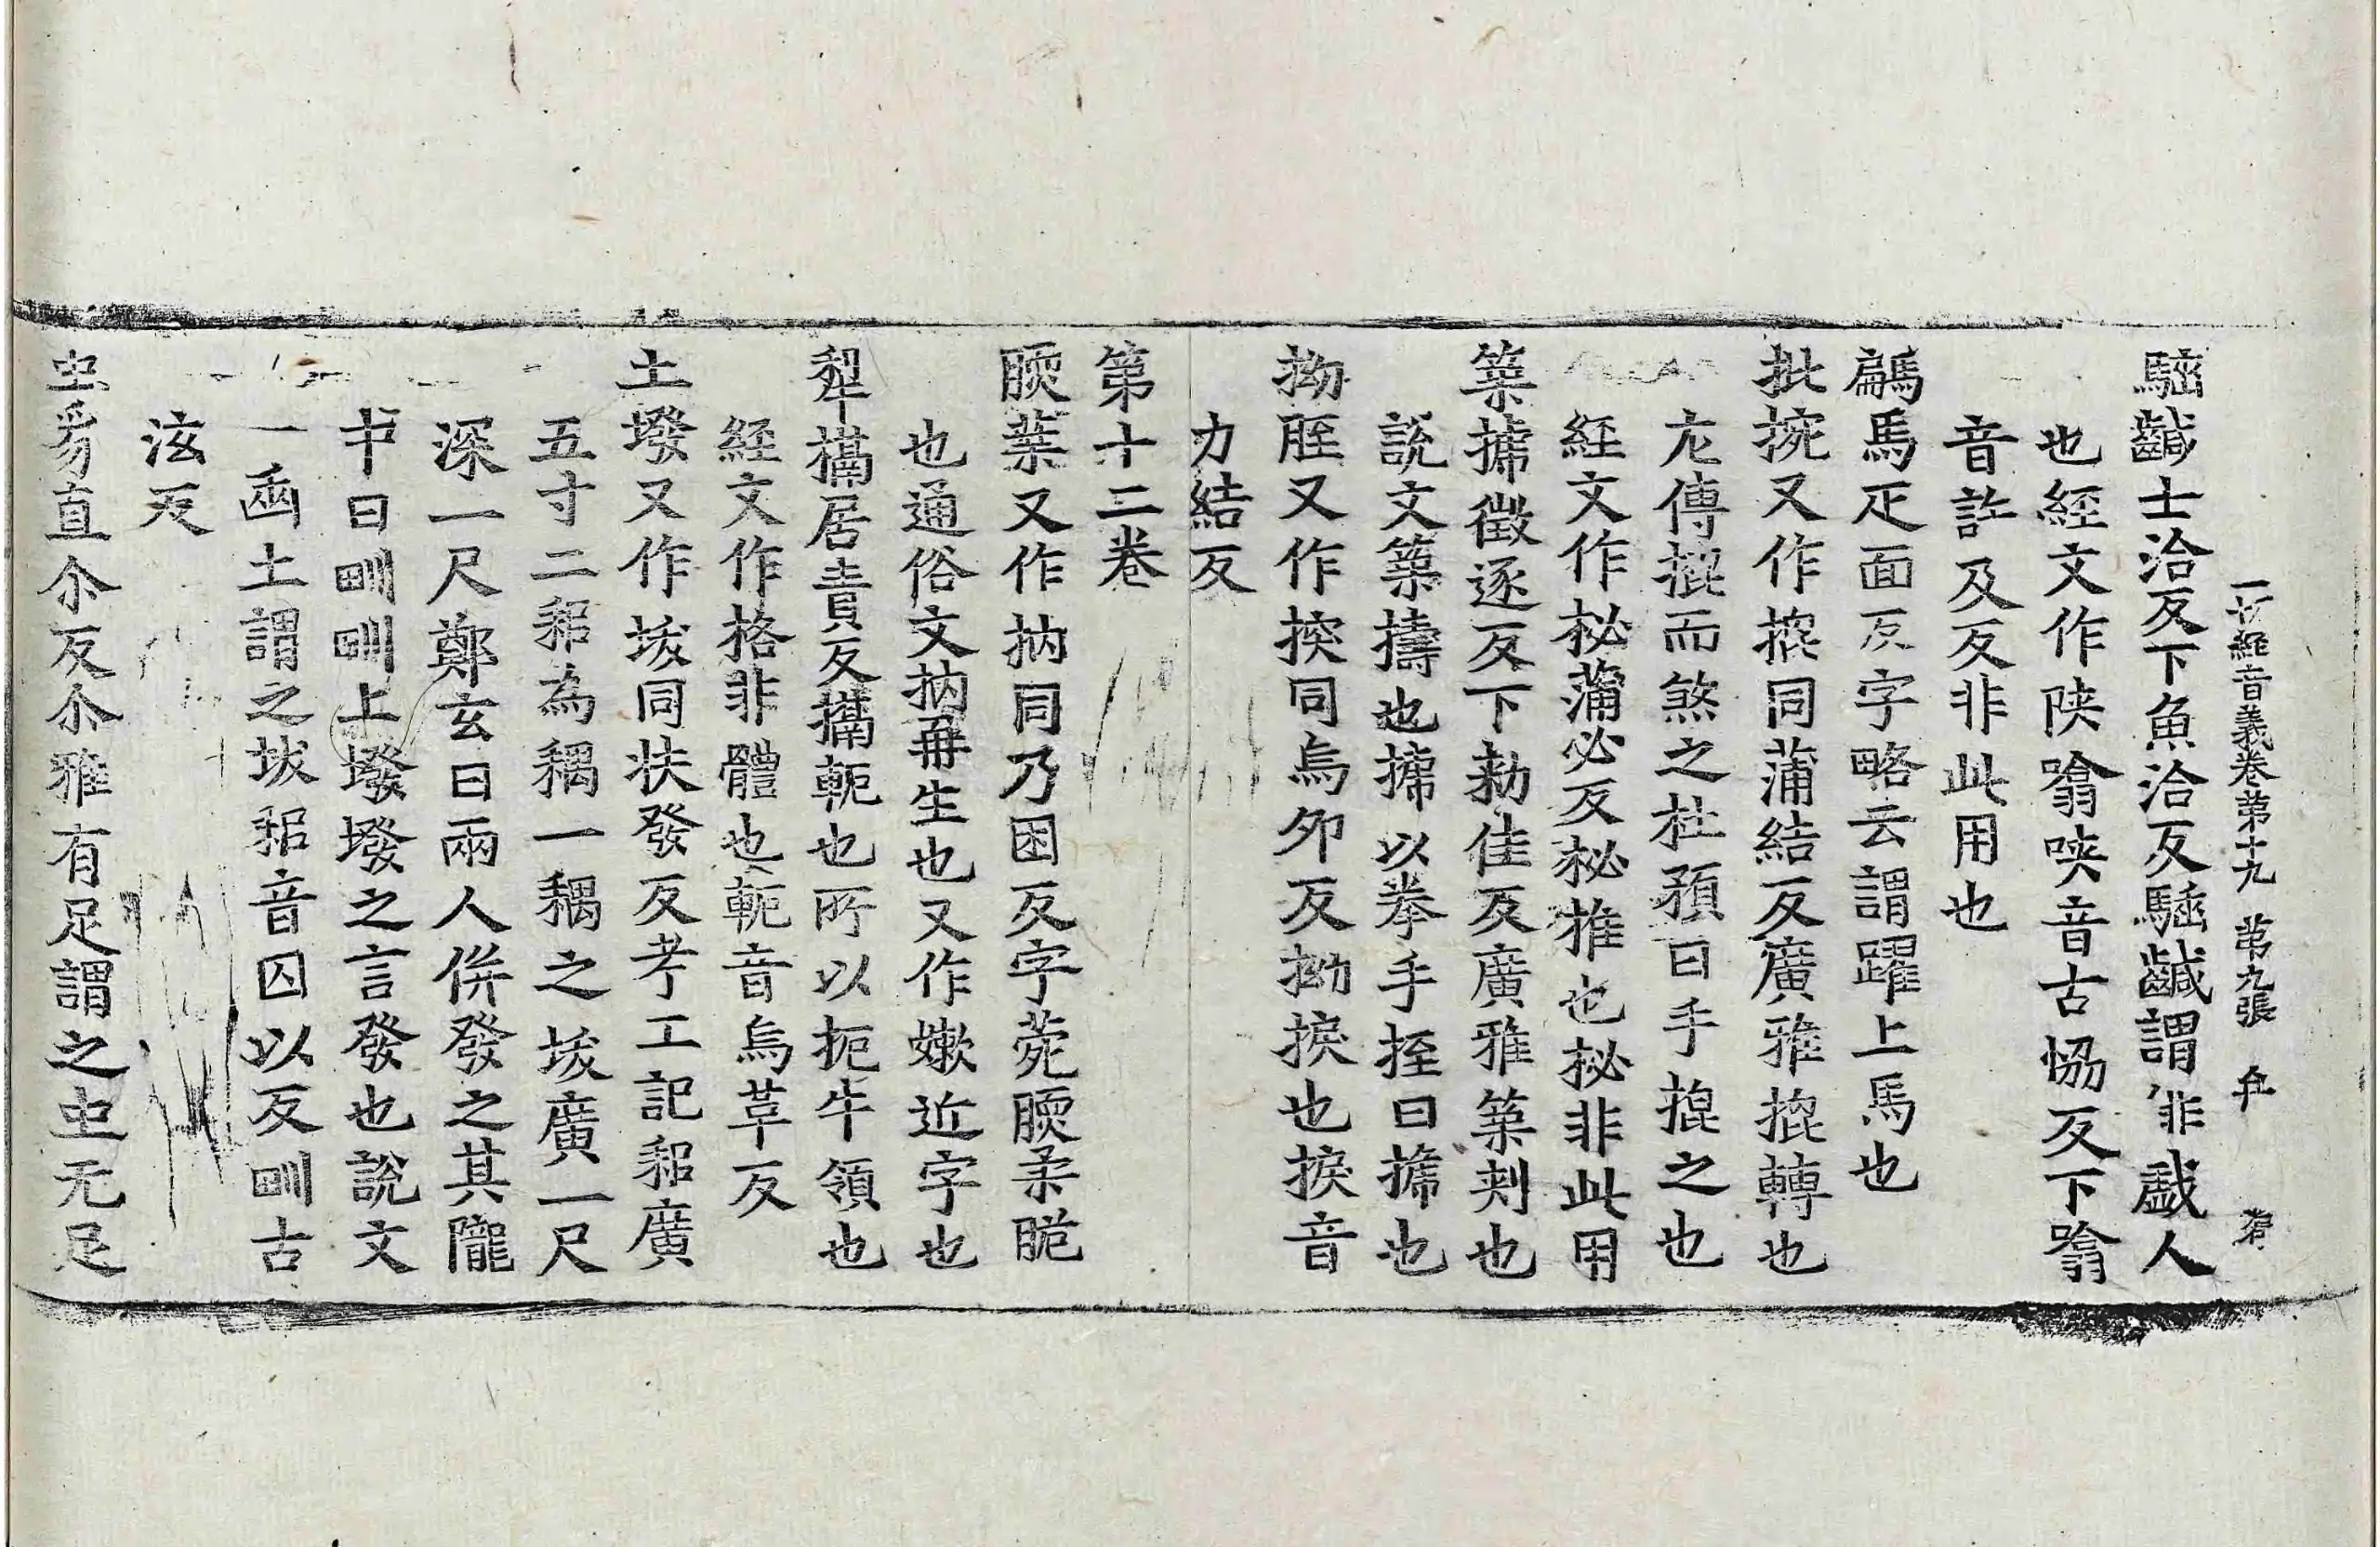 一切經音義卷第十九 第九張 弁
騄鹹士洽反下魚洽反騄鹹謂非戲人
也經文作陜噏唊音古協反下噏
音許及反非此用也
騗馬疋面反字略云謂躍上馬也
批捥又作㧙同蒲結反廣雅㧙轉也
左傳㧙而煞之杜預曰手㧙之也
經文作秘蒲必反秘推也秘非此用
築㨖徵逐反下勑佳反廣雅築刾也
說文築擣也㨖以拳手挃曰㨖也
拗胵又作㨒同烏夘反拗捩也捩音
力結反
第十二卷
腝葉又作抐同乃困反字菀腝柔脆
也通俗文抐再生也又作嫰近字也
犁槅居責反槅軛也所以扼牛領也
經文作格非體也軛音烏革反
土墢又作坺同扶發反考工記耜廣
五寸二耜為耦一耦之坺廣一尺
深一尺鄭玄曰兩人併發之其隴
中曰甽甽上墢墢之言發也說文
一臿土謂之坺耜音囚以反甽古
泫反
虫豸直尒反尒雅有足謂之虫无足